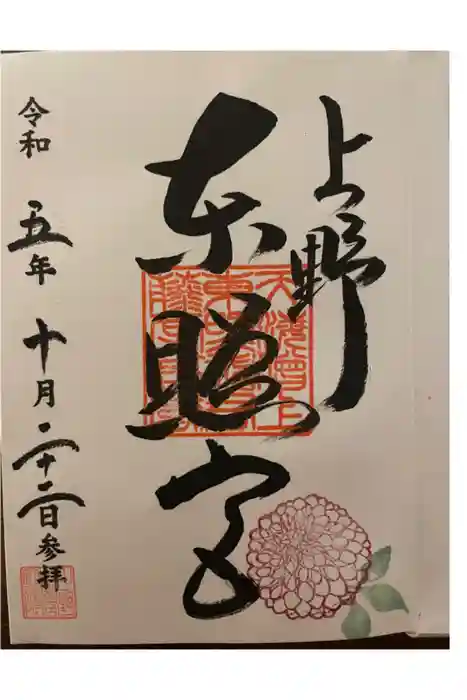 上野
東照宮
令和五年十月二十二日参拝